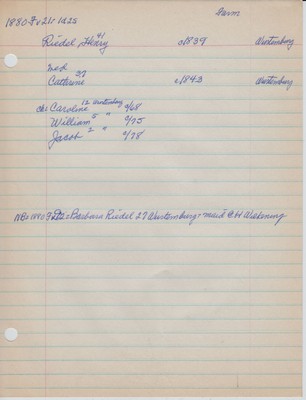 Farm
1880 Fv 21: 1225
Riedel Henry 41 c1839 Wurtemburg
Catherine 37 c1843 Wurtemburg
ch: Caroline 12 Wurtemburg c/68
William 5 " c/75
Jacob 2 " c/78
NB: 1880 Barbara Riedel 27 Wurtemburg = maid @